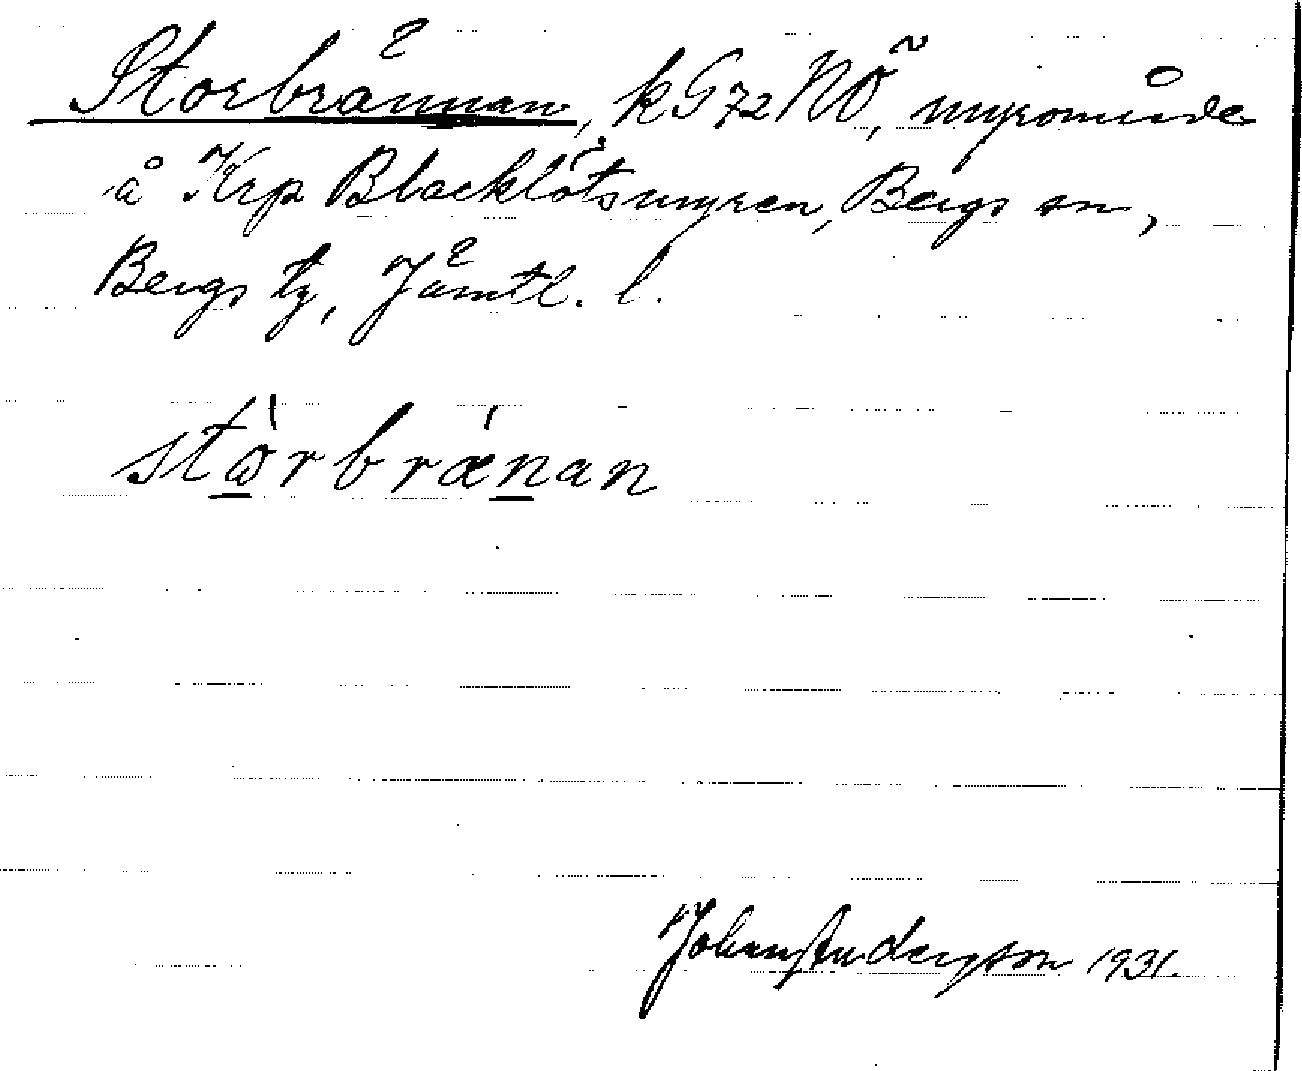 Storbrännan, k G72NÖ, myrområde
å Krp Blecklötsmyren, Bergs sn,
Bergs tg, Jämtl. l.
stωrbrænan
Johan Andersson 1931.